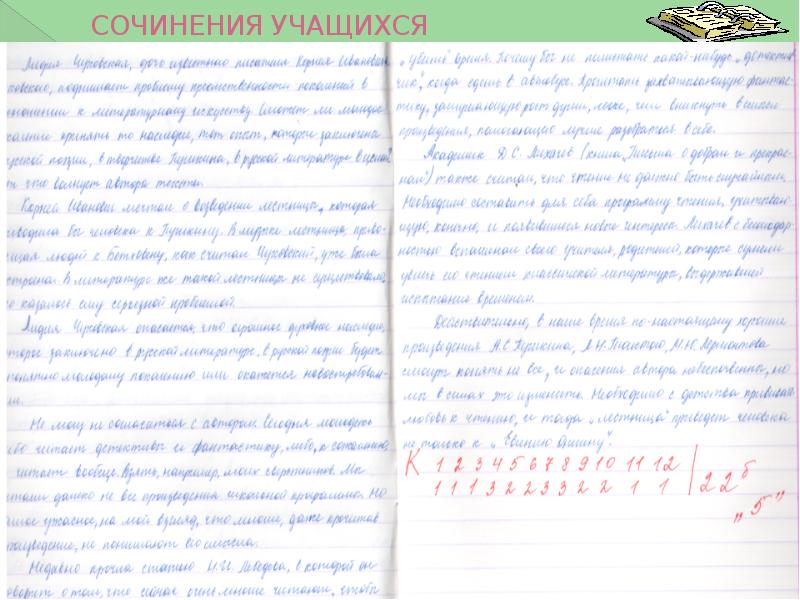 СОЧИНЕНИЯ УЧАЩИХСЯ
Лидия Чуковская, дочь известного писателя Корнея Иванови
ковского, поднимает проблему преемственности поколений в
ношении к литературному искусству. Сможет ли молодое
коление принять то наследие, тот опыт, которое заключено
русской поэзии, в творчестве Пушкина, в русской литературе в целом?
т что волнует автора текста.
Корней Иванович мечтал о возведении лестницы, которая
иводила бы человека к Пушкину. В музыке лестница, приво-
ящая людей к Бетховену, как считал Чуковский, уже была
строена. В литературе же такой лестницы не существовало,
о казалось ему серьезной проблемой.
Лидия Чуковская опасается, что огромное духовное наследие,
торое заключено в русской литературе, в русской поэзии будет
понятно молодому поколению или окажется невостребован-
м.
Не могу не согласиться с автором. Сегодня молодежь
ибо читает детективы и фантастику, либо, к сожалению,
читает вообще. Взять, например, моих сверстников. Мы
итали далеко не все произведения школьной программы. Но
амое ужасное, на мой взгляд, что многие, даже прочитав
роизведение, не понимают его смысла.
Недавно прочла статью в которой он
оворит о том, что сейчас очень многие читают, чтобы
„убить" время. Почему бы не полистать какой-нибудь „детектив
чик", когда едешь в автобусе. Прочитать захватывающую фантас-
тику, легче, чем вникнуть в смысл
произведения, помогающего лучше разобраться в себе.
Академик Д.С. Лихачёв (книга „Письма о добром и прекрас-
ном") также считал, что чтение не должно быть случайным.
Необходимо составить для себя программу чтения, учитываю-
щую, конечно, и появившиеся новые интересы. Лихачёв с благодар-
ностью вспоминал своего учителя, родителей, которые сумели
увлечь его чтением классической литературы, выдержавшей
испытание временем.
Действительно, в наше время по-настоящему хорошие
произведения А.С. Пушкина, Л.Н. Толстого, М.Ю. Лермонтова
смогут понять не все, и опасения автора небеспочвенны, но
мы в силах это изменить. Необходимо с детства прививать
любовь к чтению, и тогда „лестница" приведет человека
не только к „Евгению Онегину".
К 1 2 3 4 5 6 7 8 9 10 11 12
1 1 1 3 2 2 3 3 2 2 1 1 22б
„5"